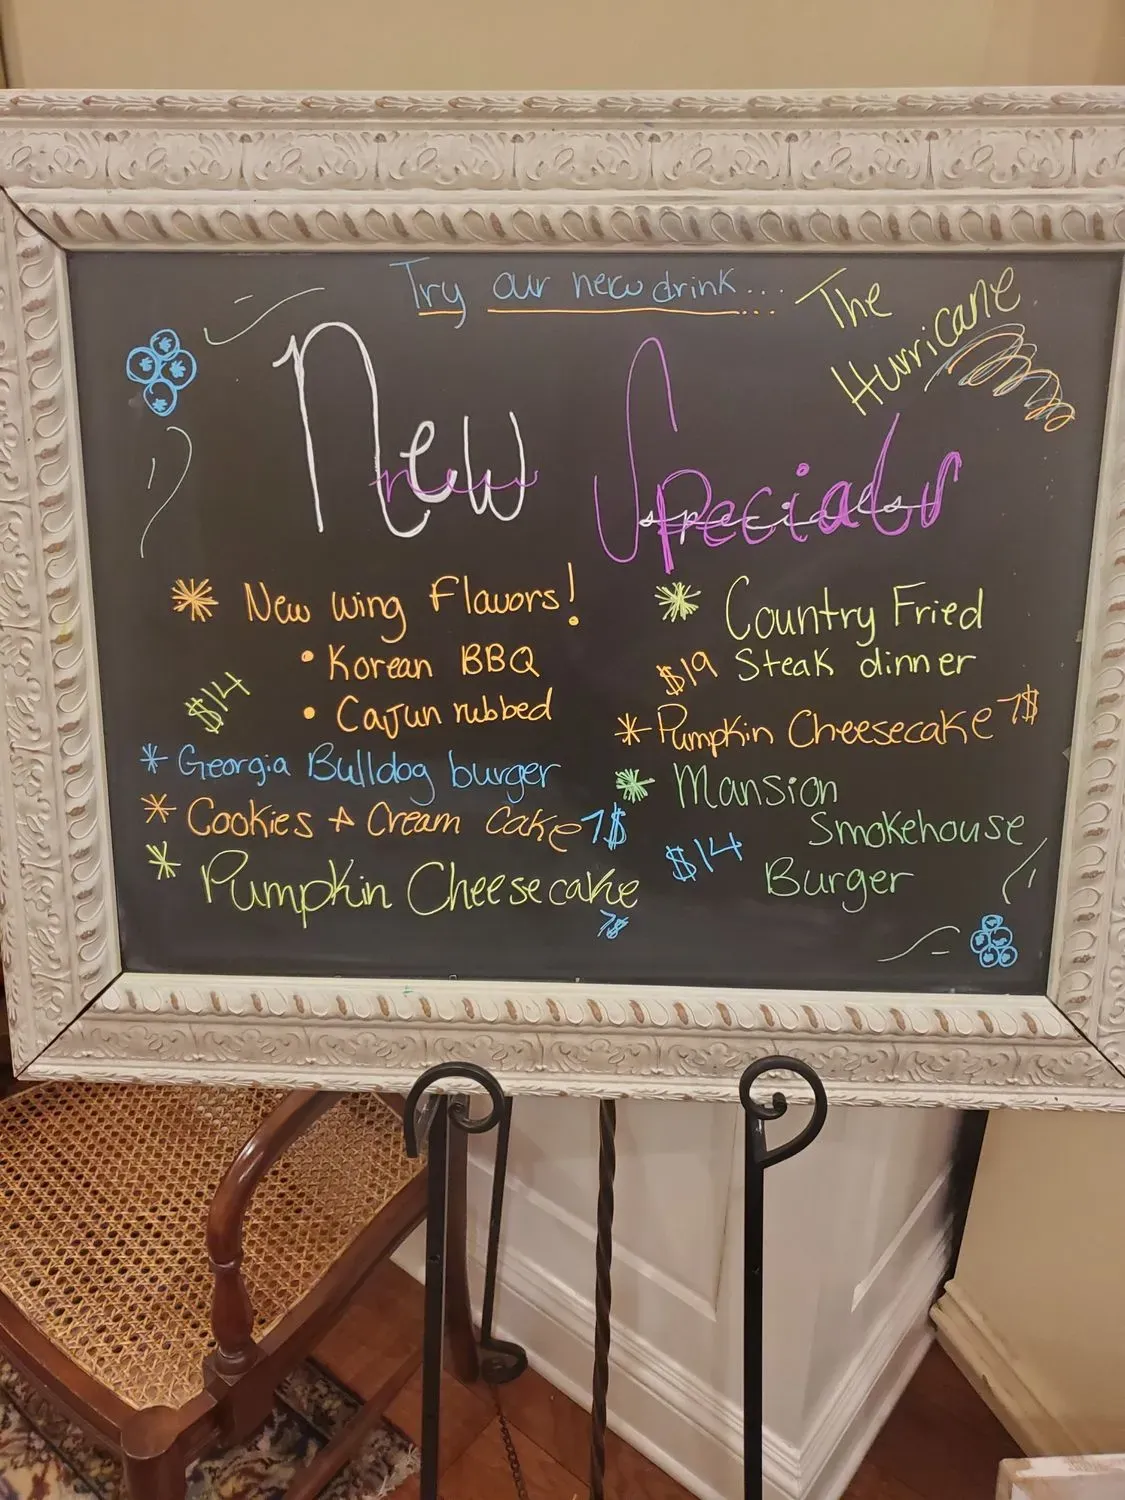 Try our new drink...
The
Hurricane
New
new
Specials
specials
New wing Flavors!
• Korean BBQ
$14
• Cajun rubbed
Georgia Bulldog burger
Cookies & Cream cake 7$
Pumpkin Cheesecake
7$
Country Fried
$19 Steak dinner
Pumpkin Cheesecake 7$
Mansion
Smokehouse
$14 Burger